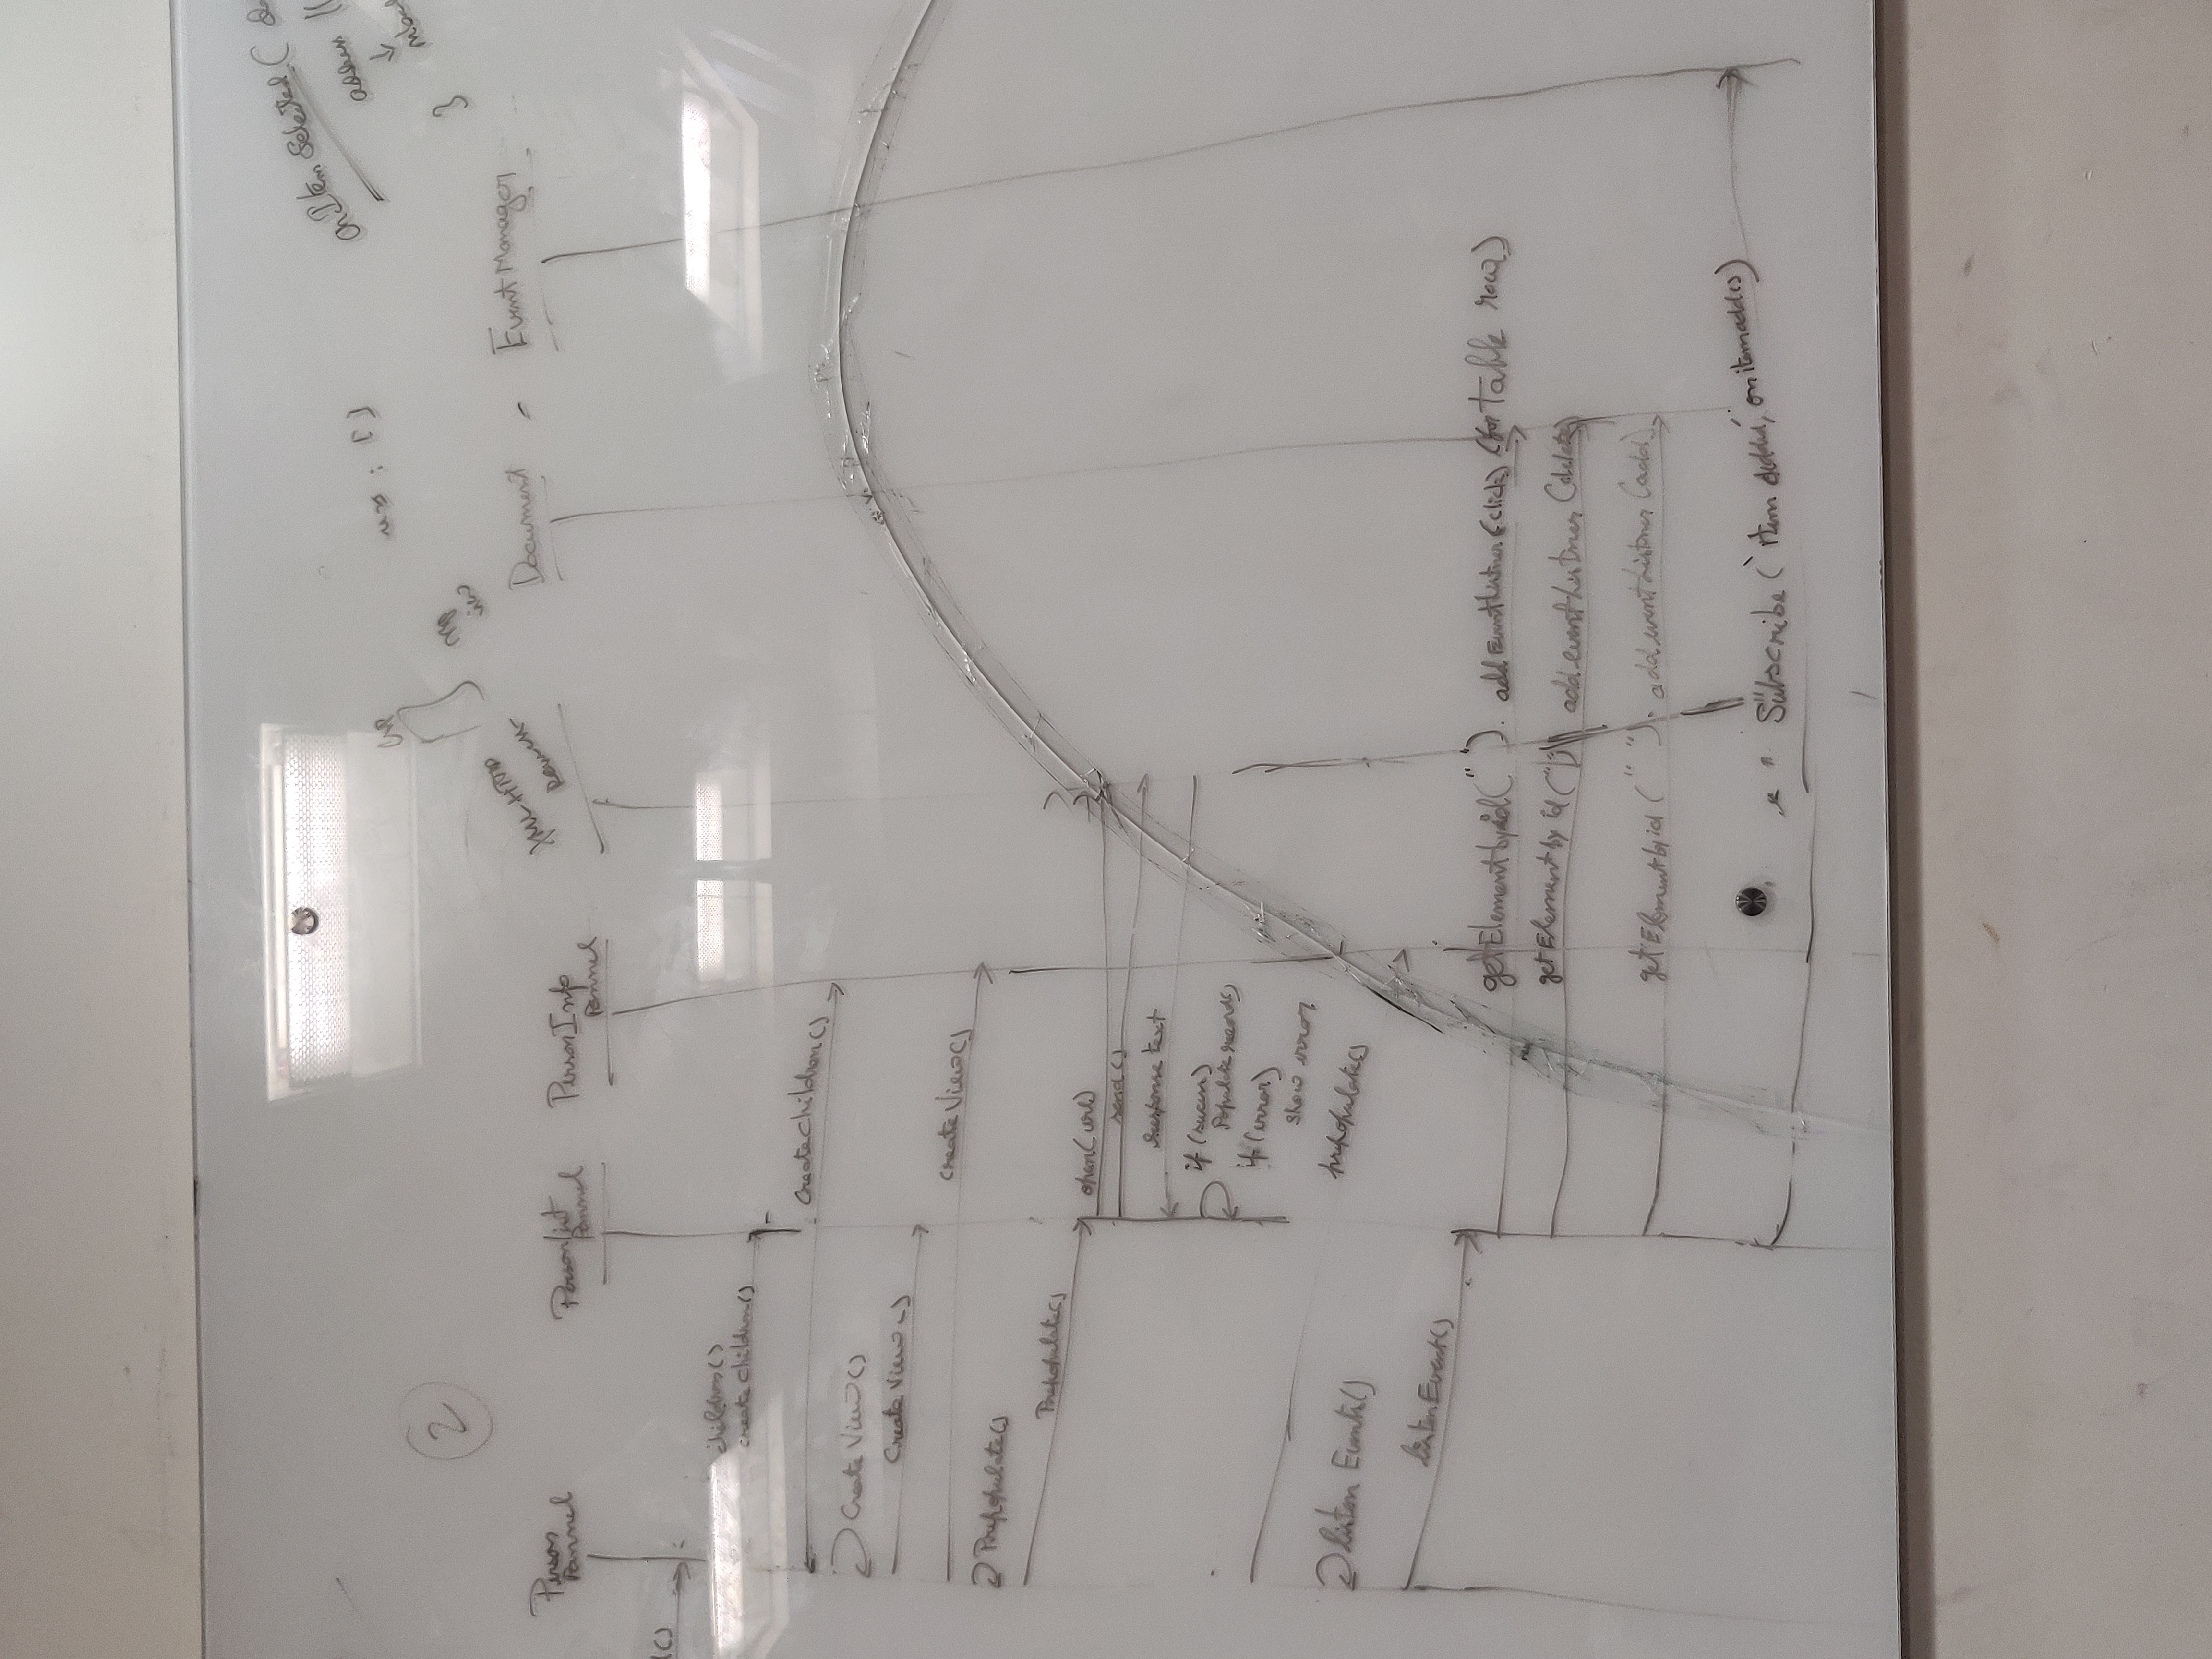 onItemSelected (
2
Person
Pannel
PersonList
Pannel
PersonInfo
Pannel
Document
EventManager
children()
create children()
createchildren()
Create View()
Create View()
create View()
Prepopulate()
Prepopulate()
open(url)
send()
response text
if (succes)
Populate records()
if (error)
show error
prepopulate()
listen Events()
listenEvent()
getElementbyid(" "). addEventListner (click) (for table row)
getElement by id (" ") add eventListner (delete)
getElementbyid (" "). add eventListner (add)
Subscribe ('item added', onitemadd())